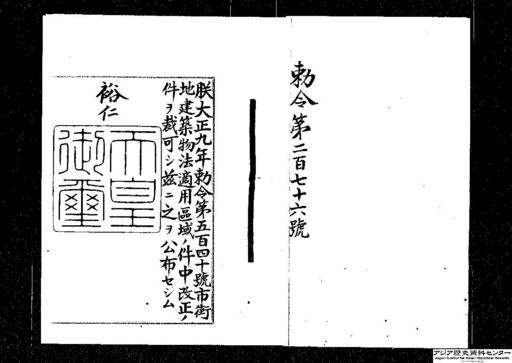 勅令第二百七十六號
朕大正九年勅令第五百四十號市街
地建築物法適用區域ノ件中改正ノ
件ヲ裁可シ茲ニ之ヲ公布セシム
裕仁
天皇
御璽
アジア歴史資料センター
Japan Center for Asian Historical Records